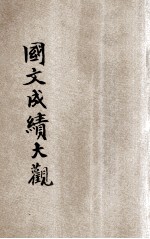 國文成績大觀